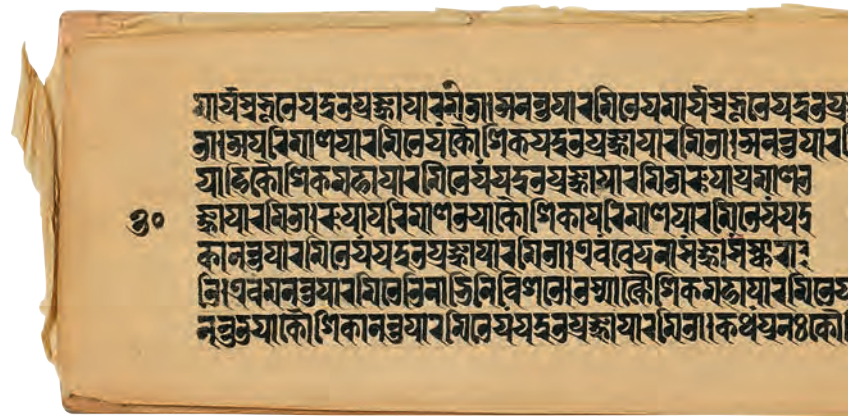 मार्यसुभूतेयदुतप्रज्ञापारमिता।अनन्तपारमितेयमार्यसुभूतेयदुतप्र
ता।अपरिमाणपारमितेयंकौशिकयदुतप्रज्ञापारमिता।अनन्तपारमि
याहिकौशिकमहापारमितेयंयदुतप्रज्ञापारमितारूपाप्रमाणत
३० ज्ञापारमिता।रूपापरिमाणतयाकौशिकापरिमाणपारमितेयंयदु
कानन्तपारमितेयंयदुतप्रज्ञापारमिता।एवंवेदनासंज्ञासंस्काराः
ति।एवमनन्तपारमितेतिनाभिनिविशते।तस्मात्कौशिकमहापारमितेय
नन्ततयाकौशिकानन्तपारमितेयंयदुतप्रज्ञापारमिता।कथंपुनःकौ